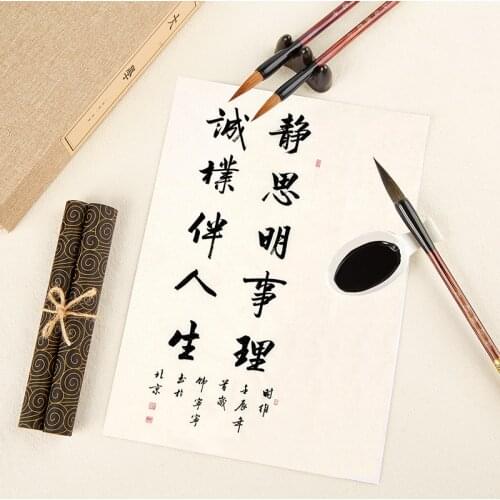 静思明事理
誠樸伴人生
时维
壬辰年
北京